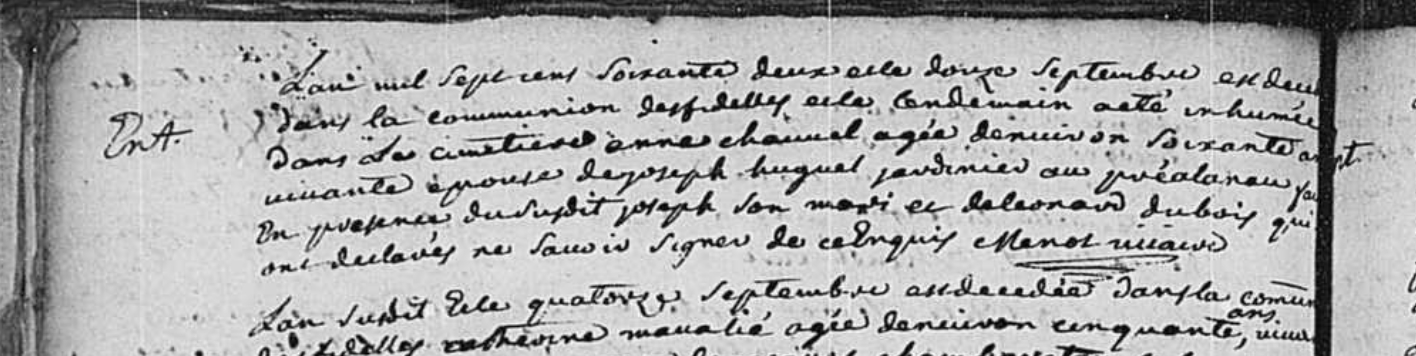 L'an mil sept cens soixante deux et le douze septembre est deced
Ent. dans la communion des fidelles et le lendemain a eté inhumée
dans le cimetiere anne chauvel agée denviron soixante
vivante epouse de joseph huguet jardinier au
En presence du susdit joseph son mari et de leonard dubois qui
ont declarés ne savoir signer de ce Enquis Menot vicaire
L'an susdit Et le quatorze septembre est decedée dans la commun
des fidelles catherine agée denviron cinquante ans, vivan